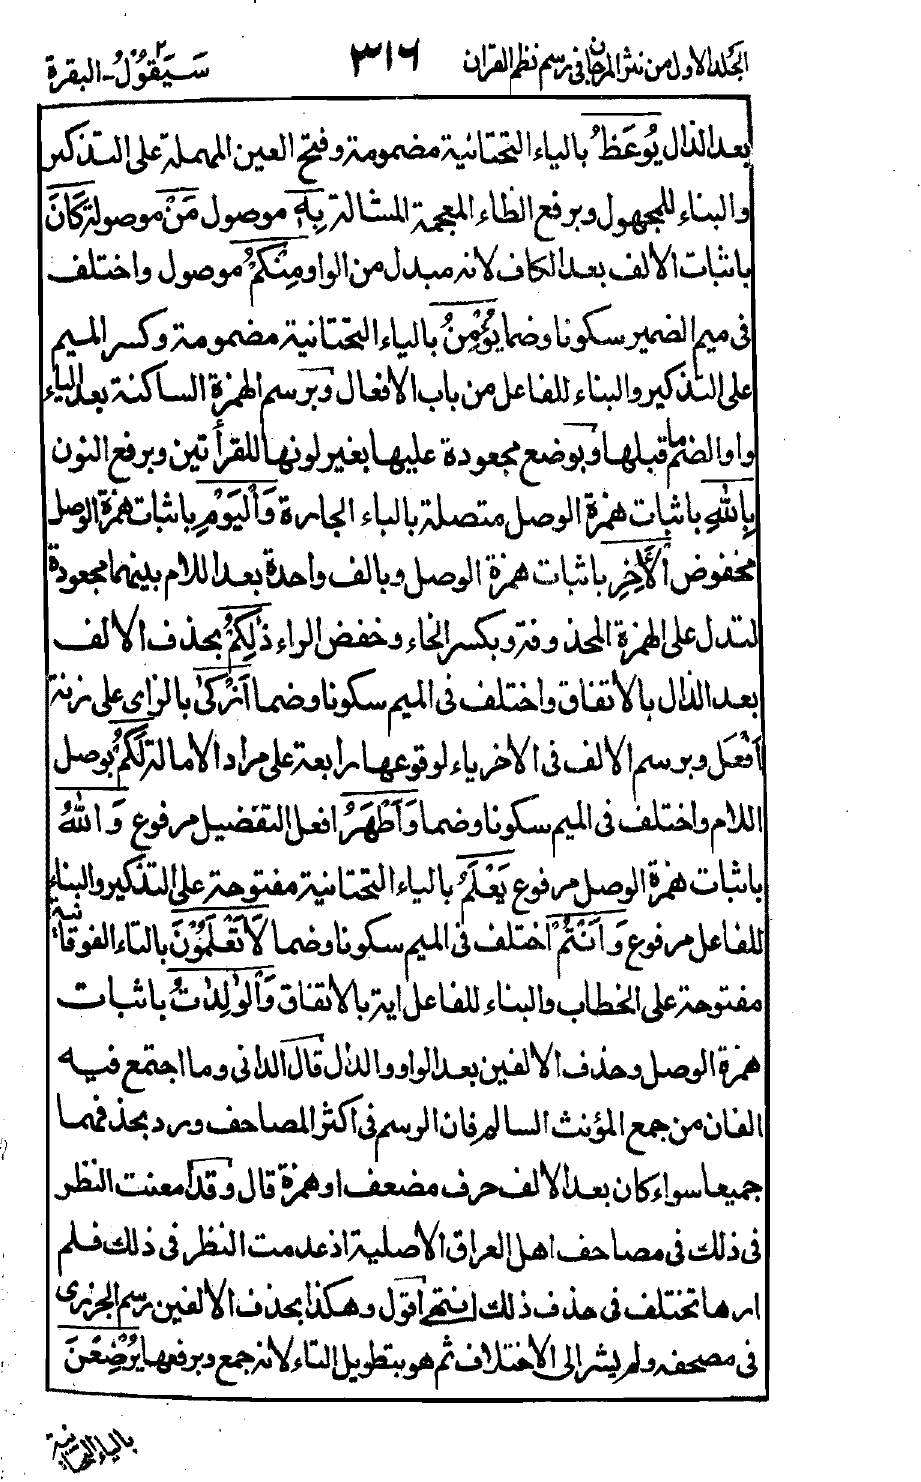 الجلد الاول من نثر المرجان في رسم نظم القران ٣١٦ سَيَقُوْلُ ٢ - البقرة
بعد الذال يُوعَظُ بالياء التحتانية مضمومة وفتح العين المهملة على التذكير
والبناء للمجهول وبرفع الظاء المعجمة المشالة بِهٖ موصول مَنْ موصولة كَانَ
باثبات الالف بعد الكاف لانه مبدل من الواو مِنْكُمْ موصول واختلف
في ميم الضمير سكونا وضما يُؤْمِنُ بالياء التحتانية مضمومة وكسر الميم
على التذكير والبناء للفاعل من باب الافعال وبرسم الهمزة الساكنة بعد الياء
واوا لضم ما قبلها وبوضع مجعودة عليها بغير لونها للقرأتين وبرفع النون
بِاللهِ باثبات همزة الوصل متصلة بالباء الجارة وَالْيَوْمِ باثبات همزة الوصل
مخفوض الْاٰخِرِ باثبات همزة الوصل وبالف واحدة بعد اللام بينهما مجعودة
لتدل على الهمزة المحذوفة وبكسر الخاء وخفض الراء ذٰلِكُمْ بحذف الالف
بعد الذال بالاتفاق واختلف في الميم سكونا وضما اَزْكٰى بالزاى على زنة
اَفْعَل وبرسم الالف في الاخر ياء لوقوعها رابعة على مراد الامالة لَكُمْ بوصل
اللام واختلف في الميم سكونا وضما وَاَطْهَرُ افعل التفضيل مرفوع وَاللهُ
باثبات همزة الوصل مرفوع يَعْلَمُ بالياء التحتانية مفتوحة على التذكير والبناء
للفاعل مرفوع وَاَنْتُمْ اختلف في الميم سكونا وضما لَاتَعْلَمُوْنَ بالتاء الفوقانية
مفتوحة على الخطاب والبناء للفاعل اية بالاتفاق وَالْوٰلِدٰتُ باثبات
همزة الوصل وحذف الالفين بعد الواو والدال قال الدانى وما اجتمع فيه
الفان من جمع المؤنث السالم فان الرسم في اكثر المصاحف ورد بحذفهما
جميعا سواء كان بعد الالف حرف مضعف او همزة قال وقد امعنت النظر
في ذلك في مصاحف اهل العراق الاصلية اذ عدمت النظر في ذلك فلم
ارها تختلف في حذف ذلك انتهى اقول وهكذا بحذف الالفين رسم الجزرى
في مصحفه ولم يشر الى الاختلاف ثم هو بتطويل التاء لانه جمع وبرفعها يُرْضِعْنَ
بالياء التحتانية